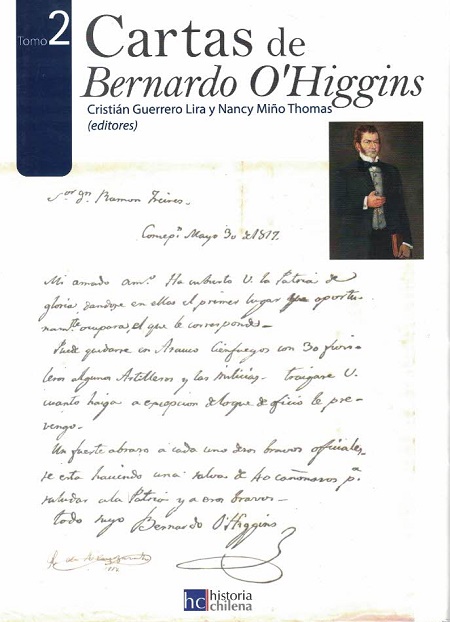 Tomo 2
Cartas de
Bernardo O'Higgins
Cristián Guerrero Lira y Nancy Miño Thomas
(editores)
Sor. gn. Ramon Freires.
Concepn. Mayo 30 de 1817.
Mi amado amo. Ha cubierto V. la Patria de
gloria, dandose en ellas el primer lugar que oportu-
namte ocupara, el que le corresponde.
Puede quedarse en Arauco Cienfuegos con 30 fusi-
leros algunos Artilleros y las milicias. traigase V.
cuanto haiga a excepcion de loque de oficio le pre-
vengo.
Un fuerte abraso a cada uno de esos bravos officiales,
se esta haciendo una salva de 40 cañonasos pa.
saludar ala Patria y a esos bravos.
todo suyo Bernardo O'Higgins
hc historia
chilena